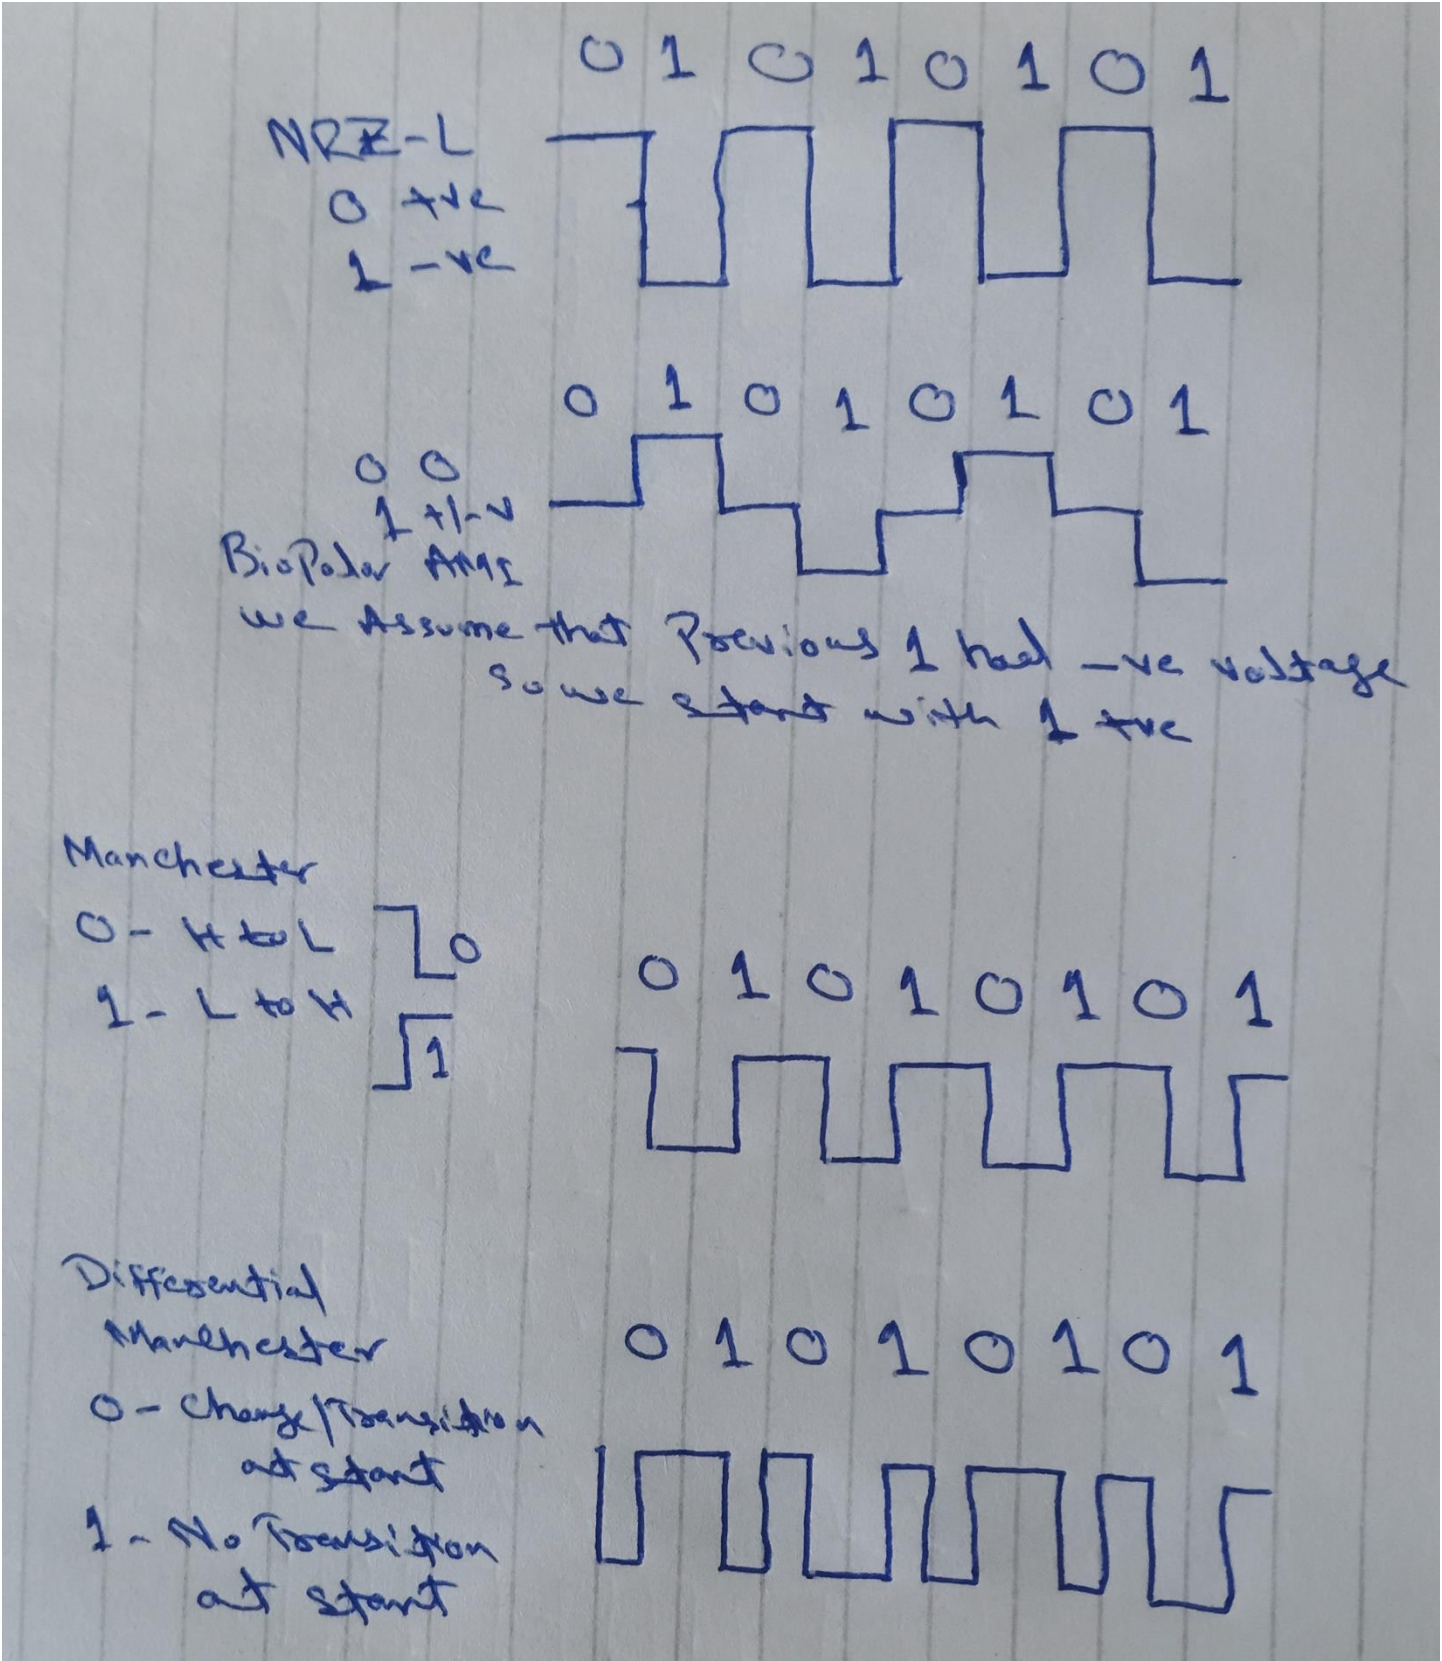 0 1 0 1 0 1 0 1
NRZ-L
0 +ve
1 -ve
0 1 0 1 0 1 0 1
0 0
1 +/-v
BioPolar AMI
we Assume that Previous 1 had -ve voltage
so we start with 1 +ve
Manchester
0- H to L
0
1- L to H
1
0 1 0 1 0 1 0 1
Differential
Manchester
0 1 0 1 0 1 0 1
0- Change/Transition
at start
1- No Transition
at start